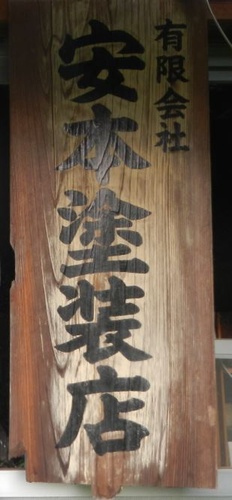 有限会社
安本塗装店